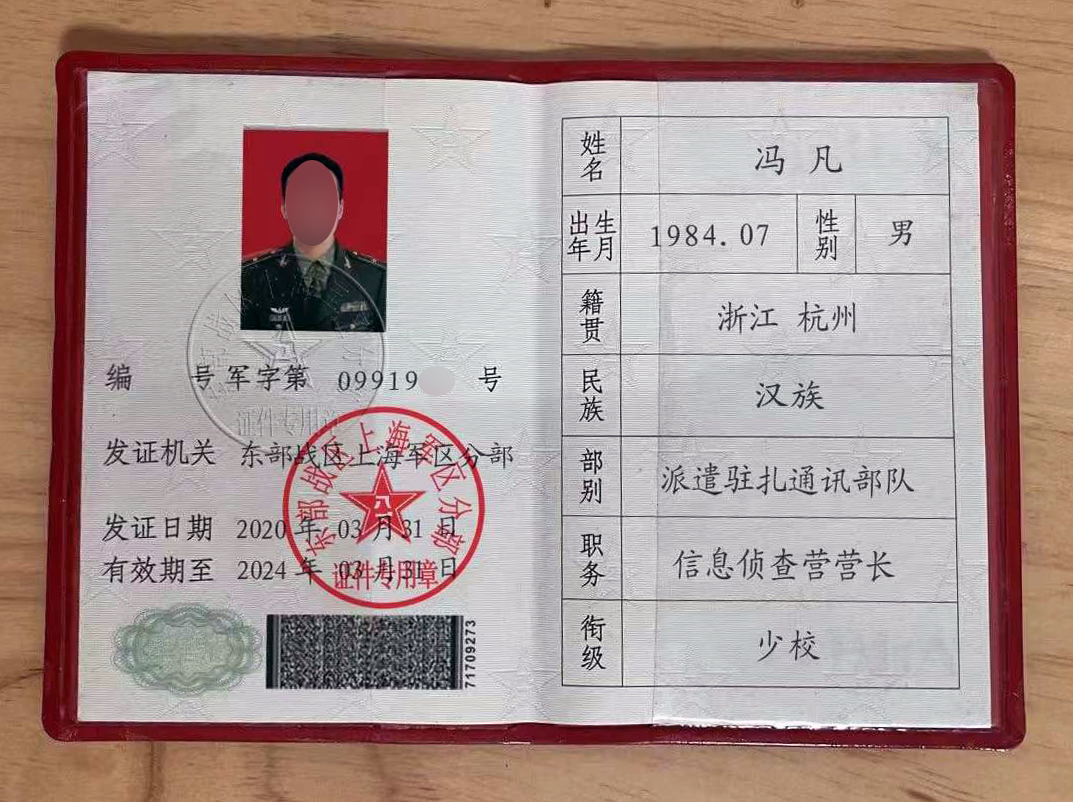 编 号 军字第 09919 号
发证机关 东部战区上海军区分部
发证日期 2020 年 03 月 31 日
有效期至 2024 年 03 月 31 日
东部战区上海军区分部
八一
证件专用章
证件专用章
71709273
姓名 冯凡
出生年月 1984.07 性别 男
籍贯 浙江 杭州
民族 汉族
部别 派遣驻扎通讯部队
职务 信息侦查营营长
衔级 少校